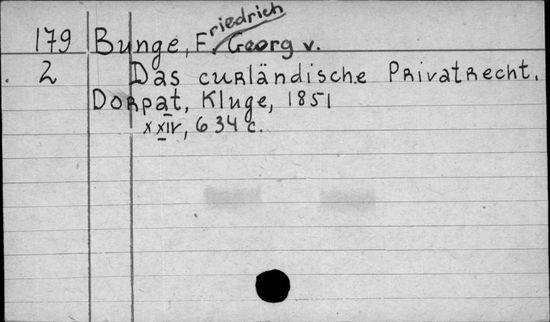 179 Bunge, Friedrich Georg v.
2 Das curländische Privatrecht.
Dorpat, Kluge, 1851
XXIV, 634 c.